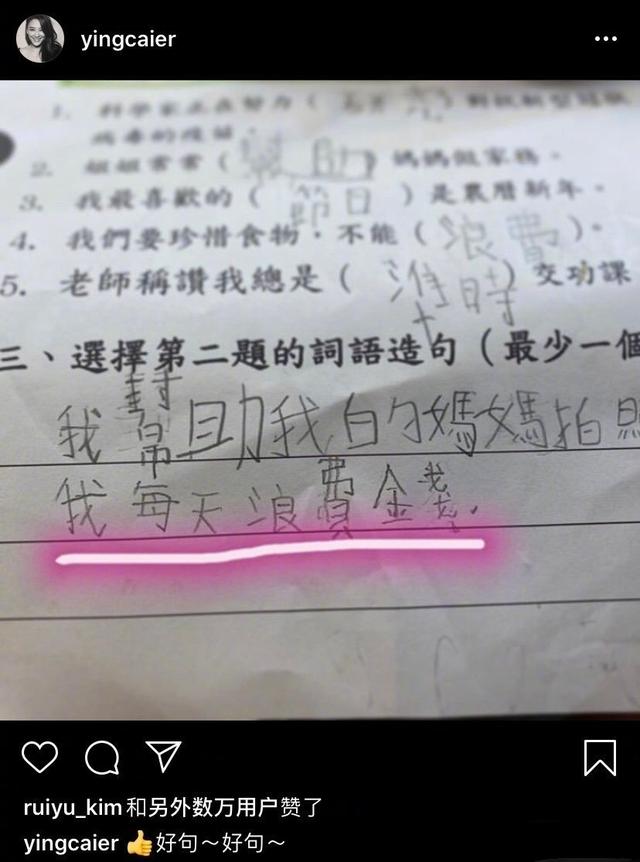 yingcaier
1. 科學家正在努力（
病毒的疫苗。
2. 姐姐常常（幫助）媽媽做家務。
3. 我最喜歡的（節日）是農曆新年。
4. 我們要珍惜食物，不能（浪費）。
5. 老師稱讚我總是（準時）交功課
三、選擇第二題的詞語造句（最少一個
我幫助我的媽媽拍照
我每天浪費金錢.
ruiyu_kim和另外数万用户赞了
yingcaier 👍好句～好句～